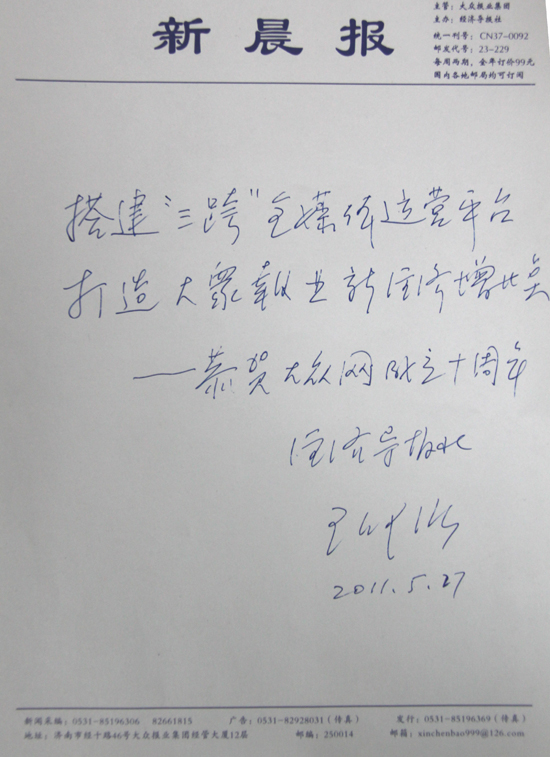 新晨报
主管：大众报业集团
主办：经济导报社
统一刊号：CN37-0092
邮发代号：23-229
每周两期，全年订价99元
国内各地邮局均可订阅
搭建“三跨”全媒体运营平台
打造大众報业新经济增长点
——恭贺大众网成立十周年
经济导报社
2011.5.27
新闻采编：0531-85196306 82661815 广告：0531-82928031（传真） 发行：0531-85196369（传真）
地址：济南市经十路46号大众报业集团经管大厦12层 邮编：250014 邮箱：xinchenbao999@126.com